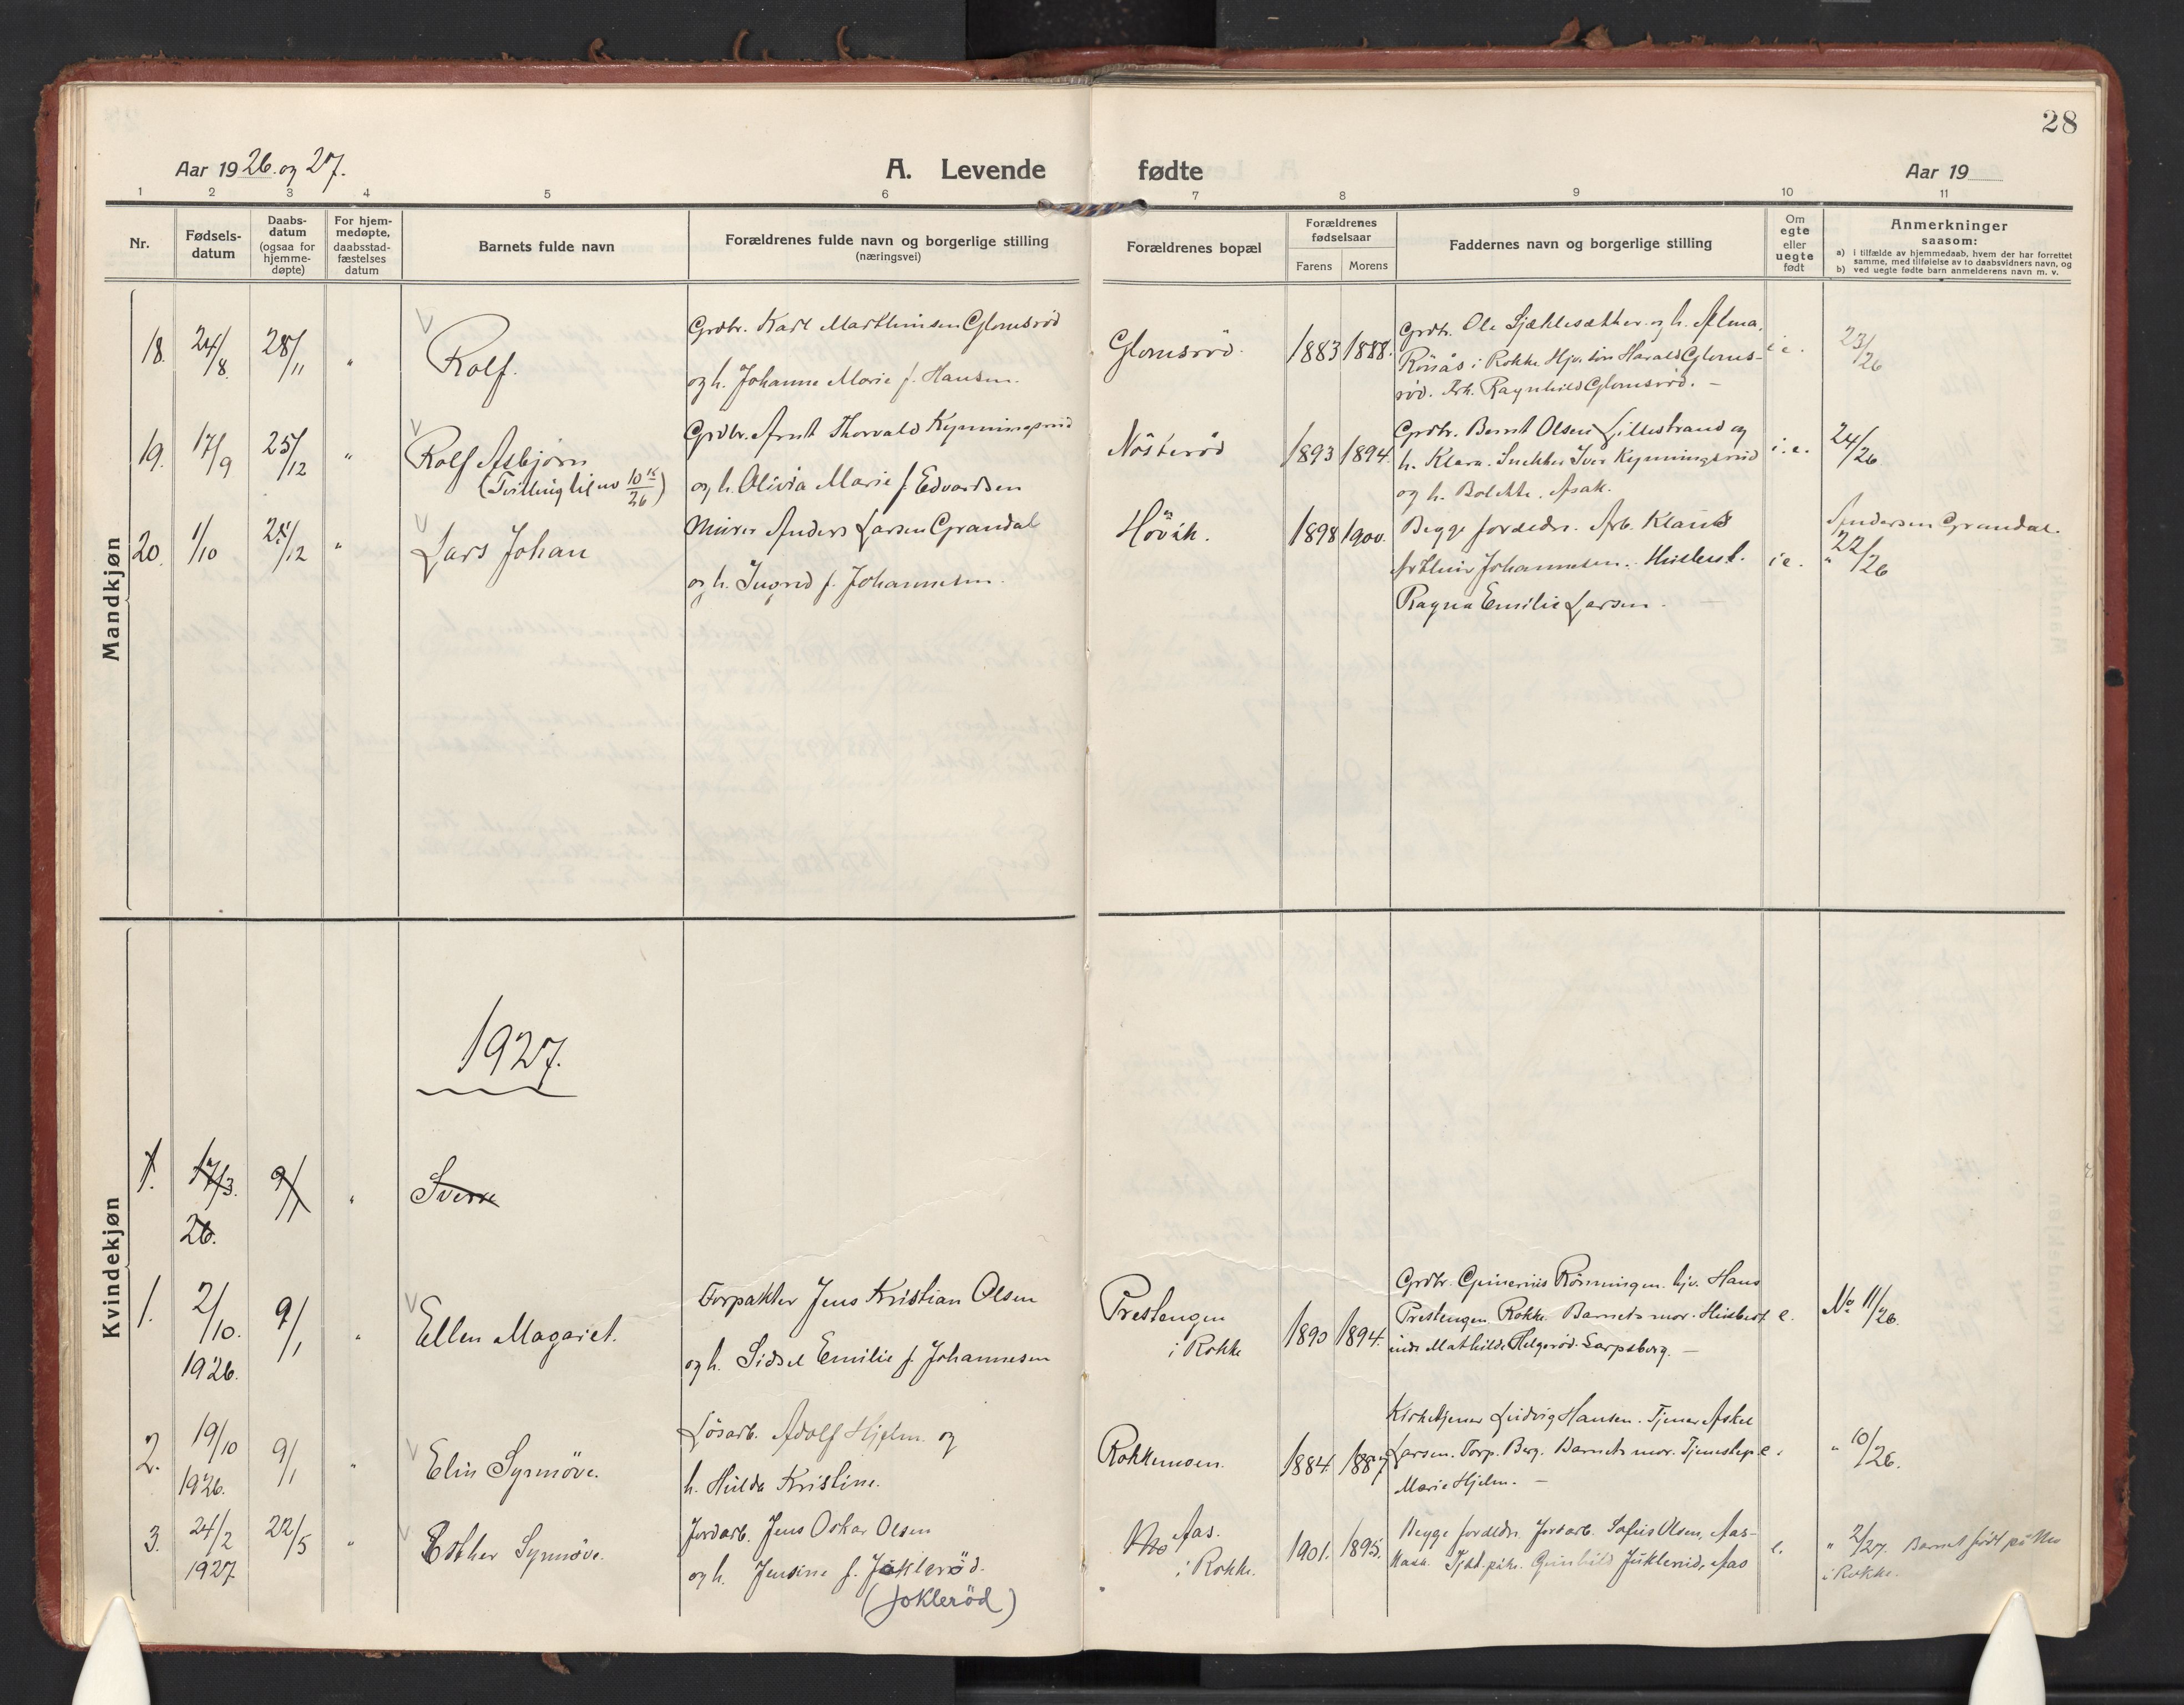 28
Aar 1926 og 27.
A. Levende fødte
Aar 19
1 2 3 4 5 6 7 8 9 10 11
Nr.
Fødsels-
datum
Daabs-
datum
(ogsaa for
hjemme-
døpte)
For hjem-
medøpte,
daabsstad-
fæstelses
datum
Barnets fulde navn
Forældrenes fulde navn og borgerlige stilling
(næringsvei)
Forældrenes bopæl
Forældrenes
fødselsaar
Farens Morens
Faddernes navn og borgerlige stilling
Om
egte
eller
uegte
født
Anmerkninger
saasom:
a) i tilfælde av hjemmedaab, hvem der har forrettet
samme, med tilføielse av to daabsvidners navn, og
b) ved uegte fødte barn anmelderens navn m. v.
Mandkjøn
18. 24/8. 28/11 " Rolf.
Grdbr. Karl Marthinsen Glomsrød
og h. Johanne Marie f. Hansen.
Glomsrød. 1883 1888.
Grdbr. Ole Sjæklesæther og h. Alma.
Rönås i Rokke. Hjv. søn Harald Gloms-
rød. Ragnhild Glomsrød. –
i e.
23/26
19. 17/9 25/12 " Rolf Asbjörn
(Tvilling til no 10/26)
Grdbr. Arnt Thorvald Kynningsrud
og h. Olivia Marie f. Edvardsen
Nösteröd 1893 1894.
Grdbr. Bernt Olsen Lillestrand og
h. Klara. Snekker Iver Kynningsrud
og h. Bolette. Asak.
i. e.
24/26
20. 1/10 25/12 " Lars Johan
Murer Anders Larsen Grandal
og h. Ingrid f. Johannesen.
Hövik. 1898 1900.
Begge foreldre. Arb. Klaus
Johannesen. Husbest.
Ragna Emilie Larsen. –
i e.
Andersen Grandal.
" 22/26
Kvindekjøn
1927.
1. 17/3. 9/1 " Sverre
26.
1. 2/10. 9/1 " Ellen Magaret.
1926.
Forpakter Jens Kristian Olsen
og h. Sidsel Emilie f. Johannesen
Prestengen
i Rokke
1890 1894.
Grdbr. Gunerius Rönningen. hjv. Hans
Prestengen Rokke. Barnets mor. Husbest
inde Mathilde Helgeröd. Sarpsborg. –
e.
No 11/26.
2. 19/10 9/1 " Elin Synnöve.
1926.
Lösarb. Adolf Hjelm og
h. Hulda Kristine.
Rokkemoen. 1884. 1887
Kirketjener Ludvig Hansen. Tjener Askel
Larsen. Torp. Berg. Barnets mor. Tjenestep.
Marie Hjelm. –
e.
" 10/26.
3. 24/2 22/5 " Esther Synnöve.
1927
Jordarb. Jens Oskar Olsen
og h. Jensine f. Jokleröd.
(Jokleröd)
Mo Aas.
i Rokke.
1901. 1895.
Begge foreldre. Jordarb. Sofus Olsen, Aas-
Gunhild Juklerud, Aas
e.
" 2/27. Barnet født på Mo
i Rokke.